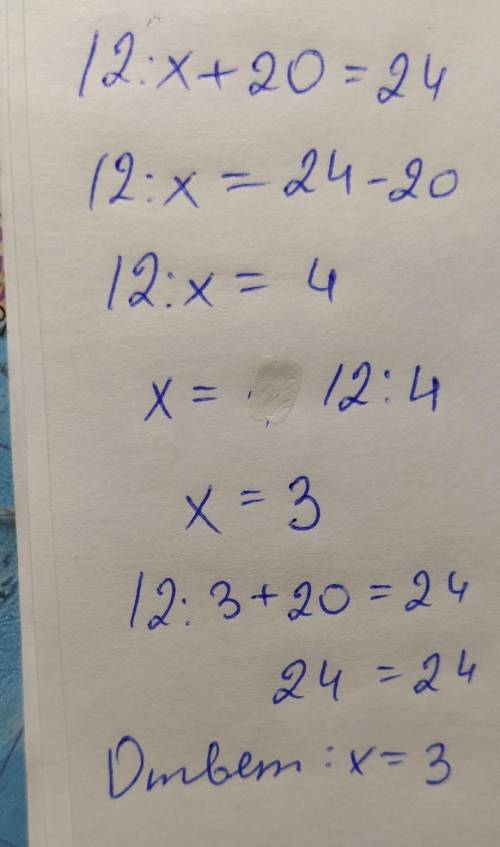 12:x+20=24
12:x=24-20
12:x=4
x= 12:4
x=3
12:3+20=24
24=24
Ответ: x=3